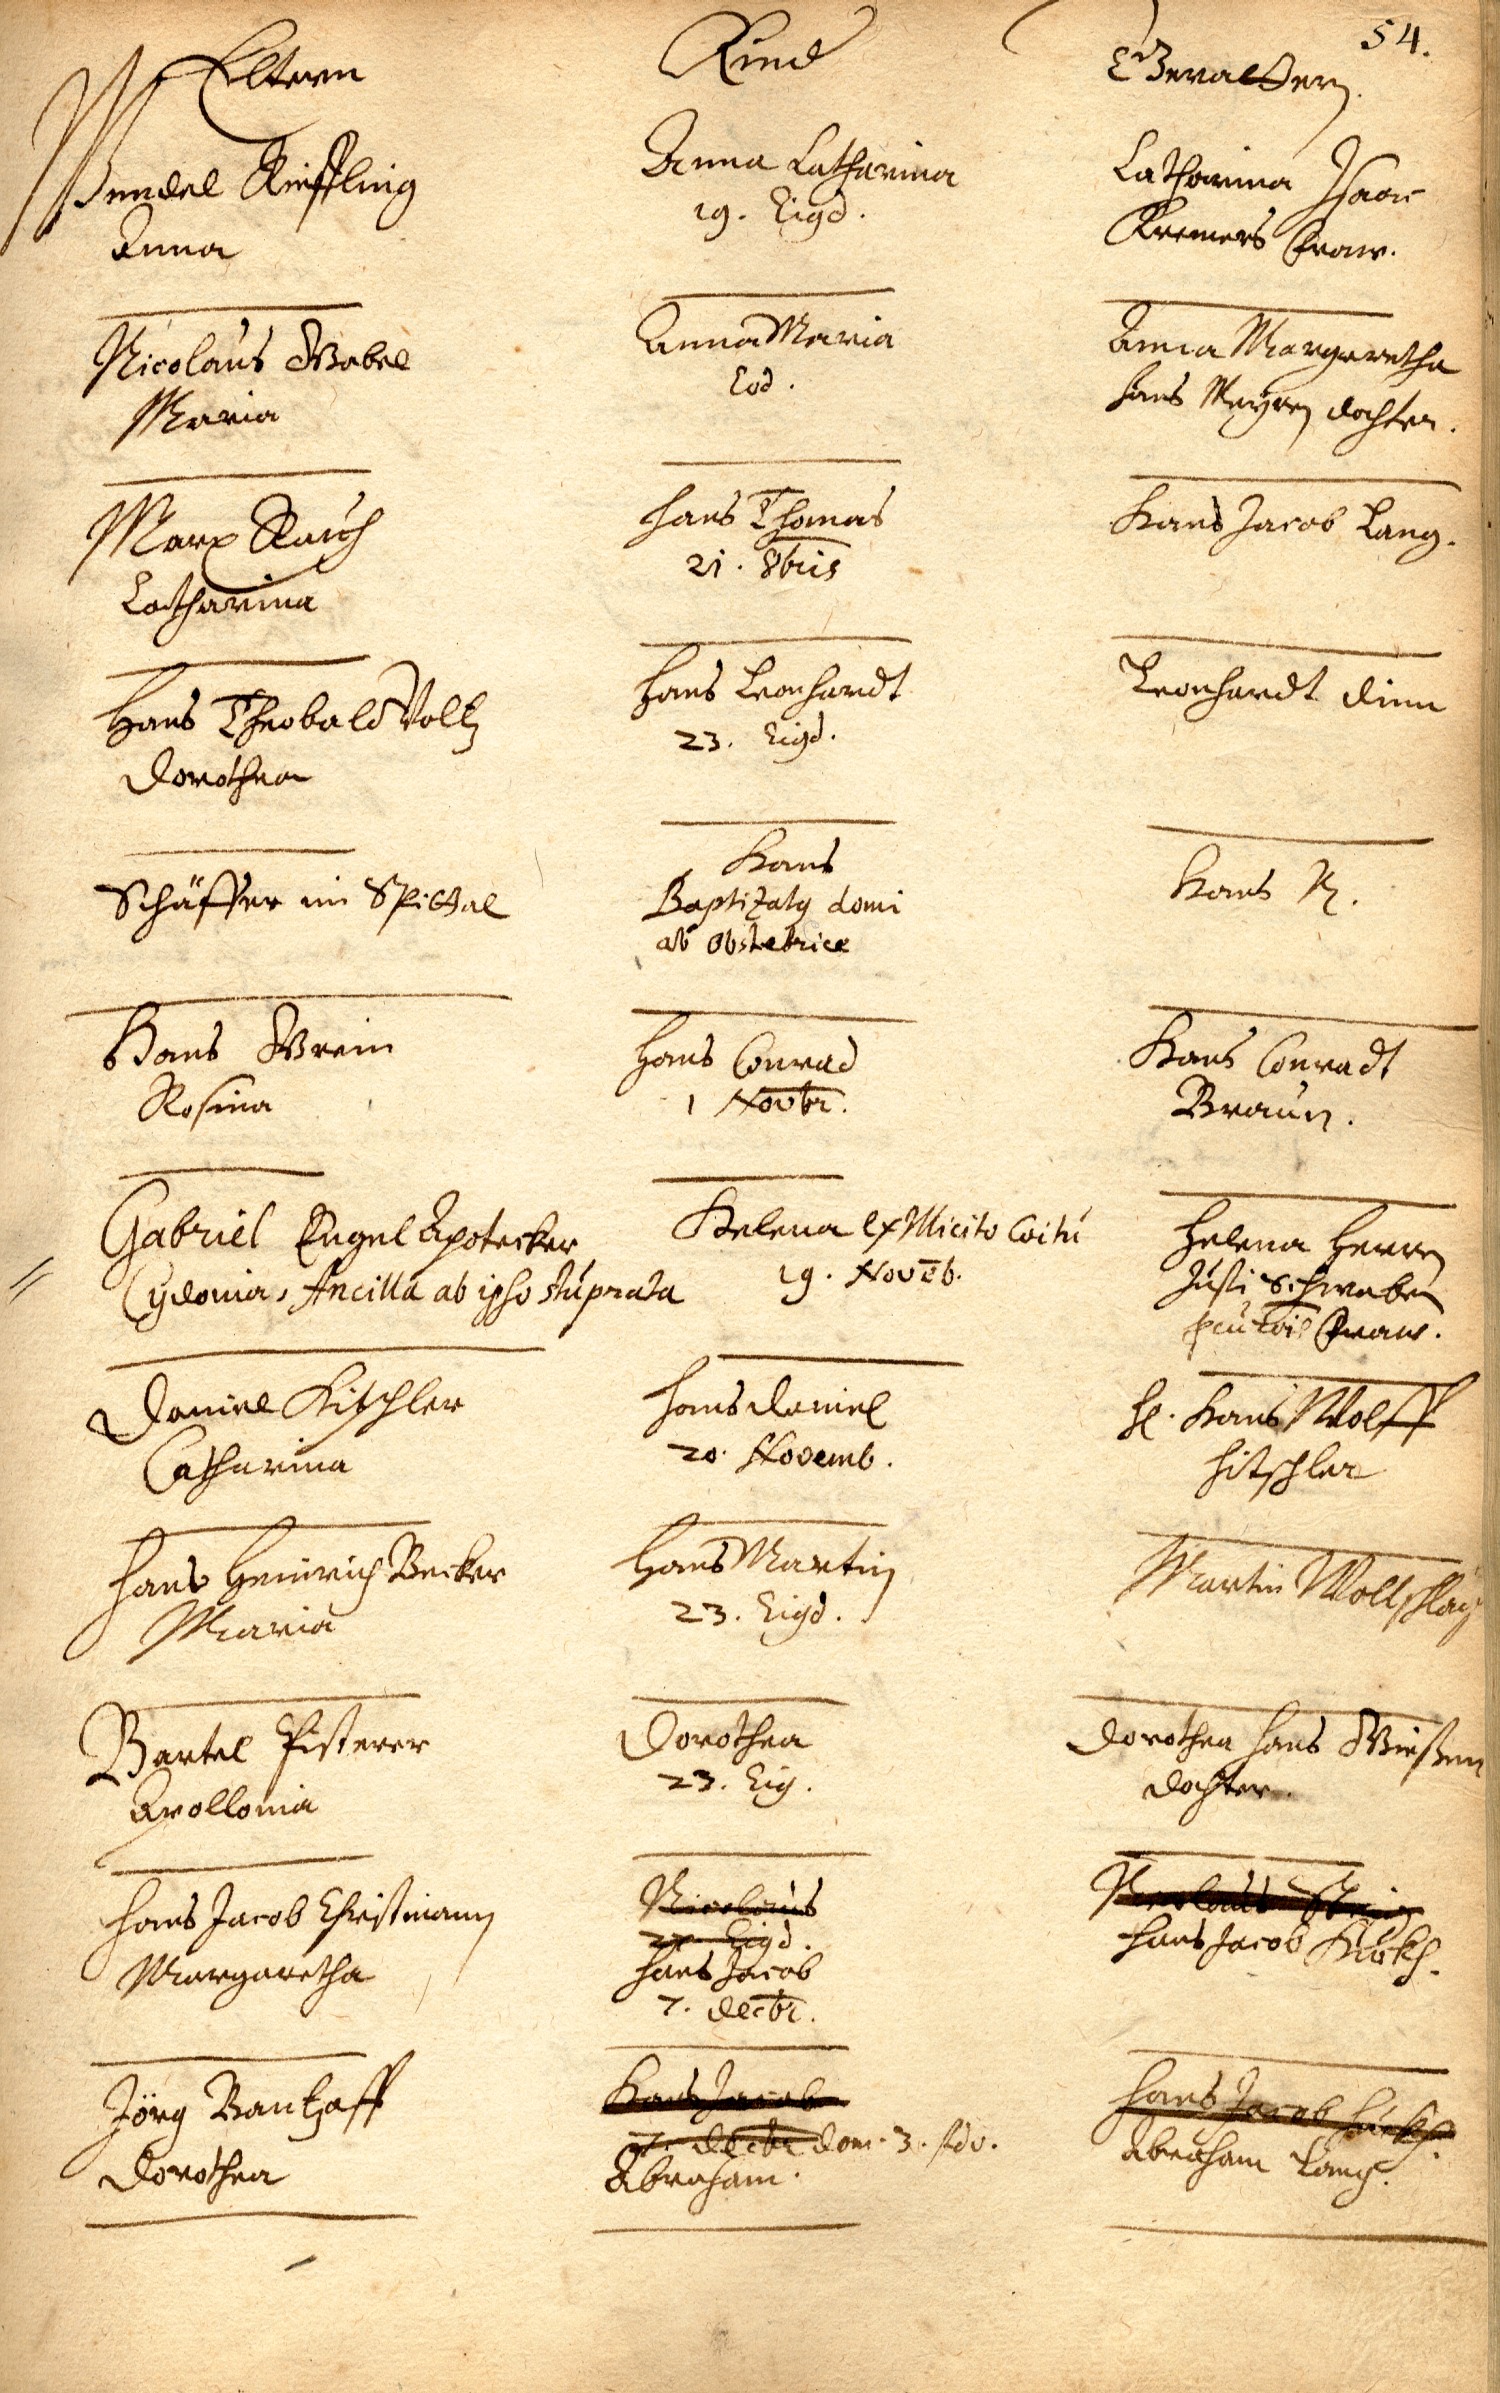 54.
Eltern
Kind
Gevattern.
Wendel Kieffling
Anna
Anna Catharina
19. Eigd.
Catharina Isaac
Kremers Fraw.
Nicolaus Wabel
Maria
Anna Maria
Eod.
Anna Margaretha
Hans Meyers dochter.
Marx Rauch
Catharina
Hans Thomas
21. 8bris
Hans Jacob Lang.
Hans Theobald Voltz
Dorothea
Hans Leonhardt
23. Eigd.
Leonhardt Dinn
Schäffer im Spittal
Hans
Baptizatus domi
ab obstetrice
Hans N.
Hans Wrein
Rosina
Hans Conrad
1 Novbr.
Hans Conradt
Braun.
Gabriel Engel Apotecker
Cydonia, Ancilla ab ipso stuprata
Helena ex illicito Coitu
19. Noveb.
Helena Herren
Justi Schwaben
Fraw.
Daniel Hitschler
Catharina
Hans Daniel
20. Novemb.
H. Hans Wolff
Hitschler
Hans Heinrich Becker
Maria
Hans Martin
23. Eigd.
Martin Wollschläg
Bartel Pfisterer
Apollonia
Dorothea
23. Eig.
Dorothea Hans Wießen
dochter.
Hans Jacob Christmann
Margaretha
Nicolaus
Eigd.
Hans Jacob
7. Decbr.
Nicolaus
Hans Jacob Hückh.
Jörg Bantzaff
Dorothea
Hans Jacob
7. Decbr. dom. 3. Adv.
Abraham.
Hans Jacob Hückh.
Abraham Lang.